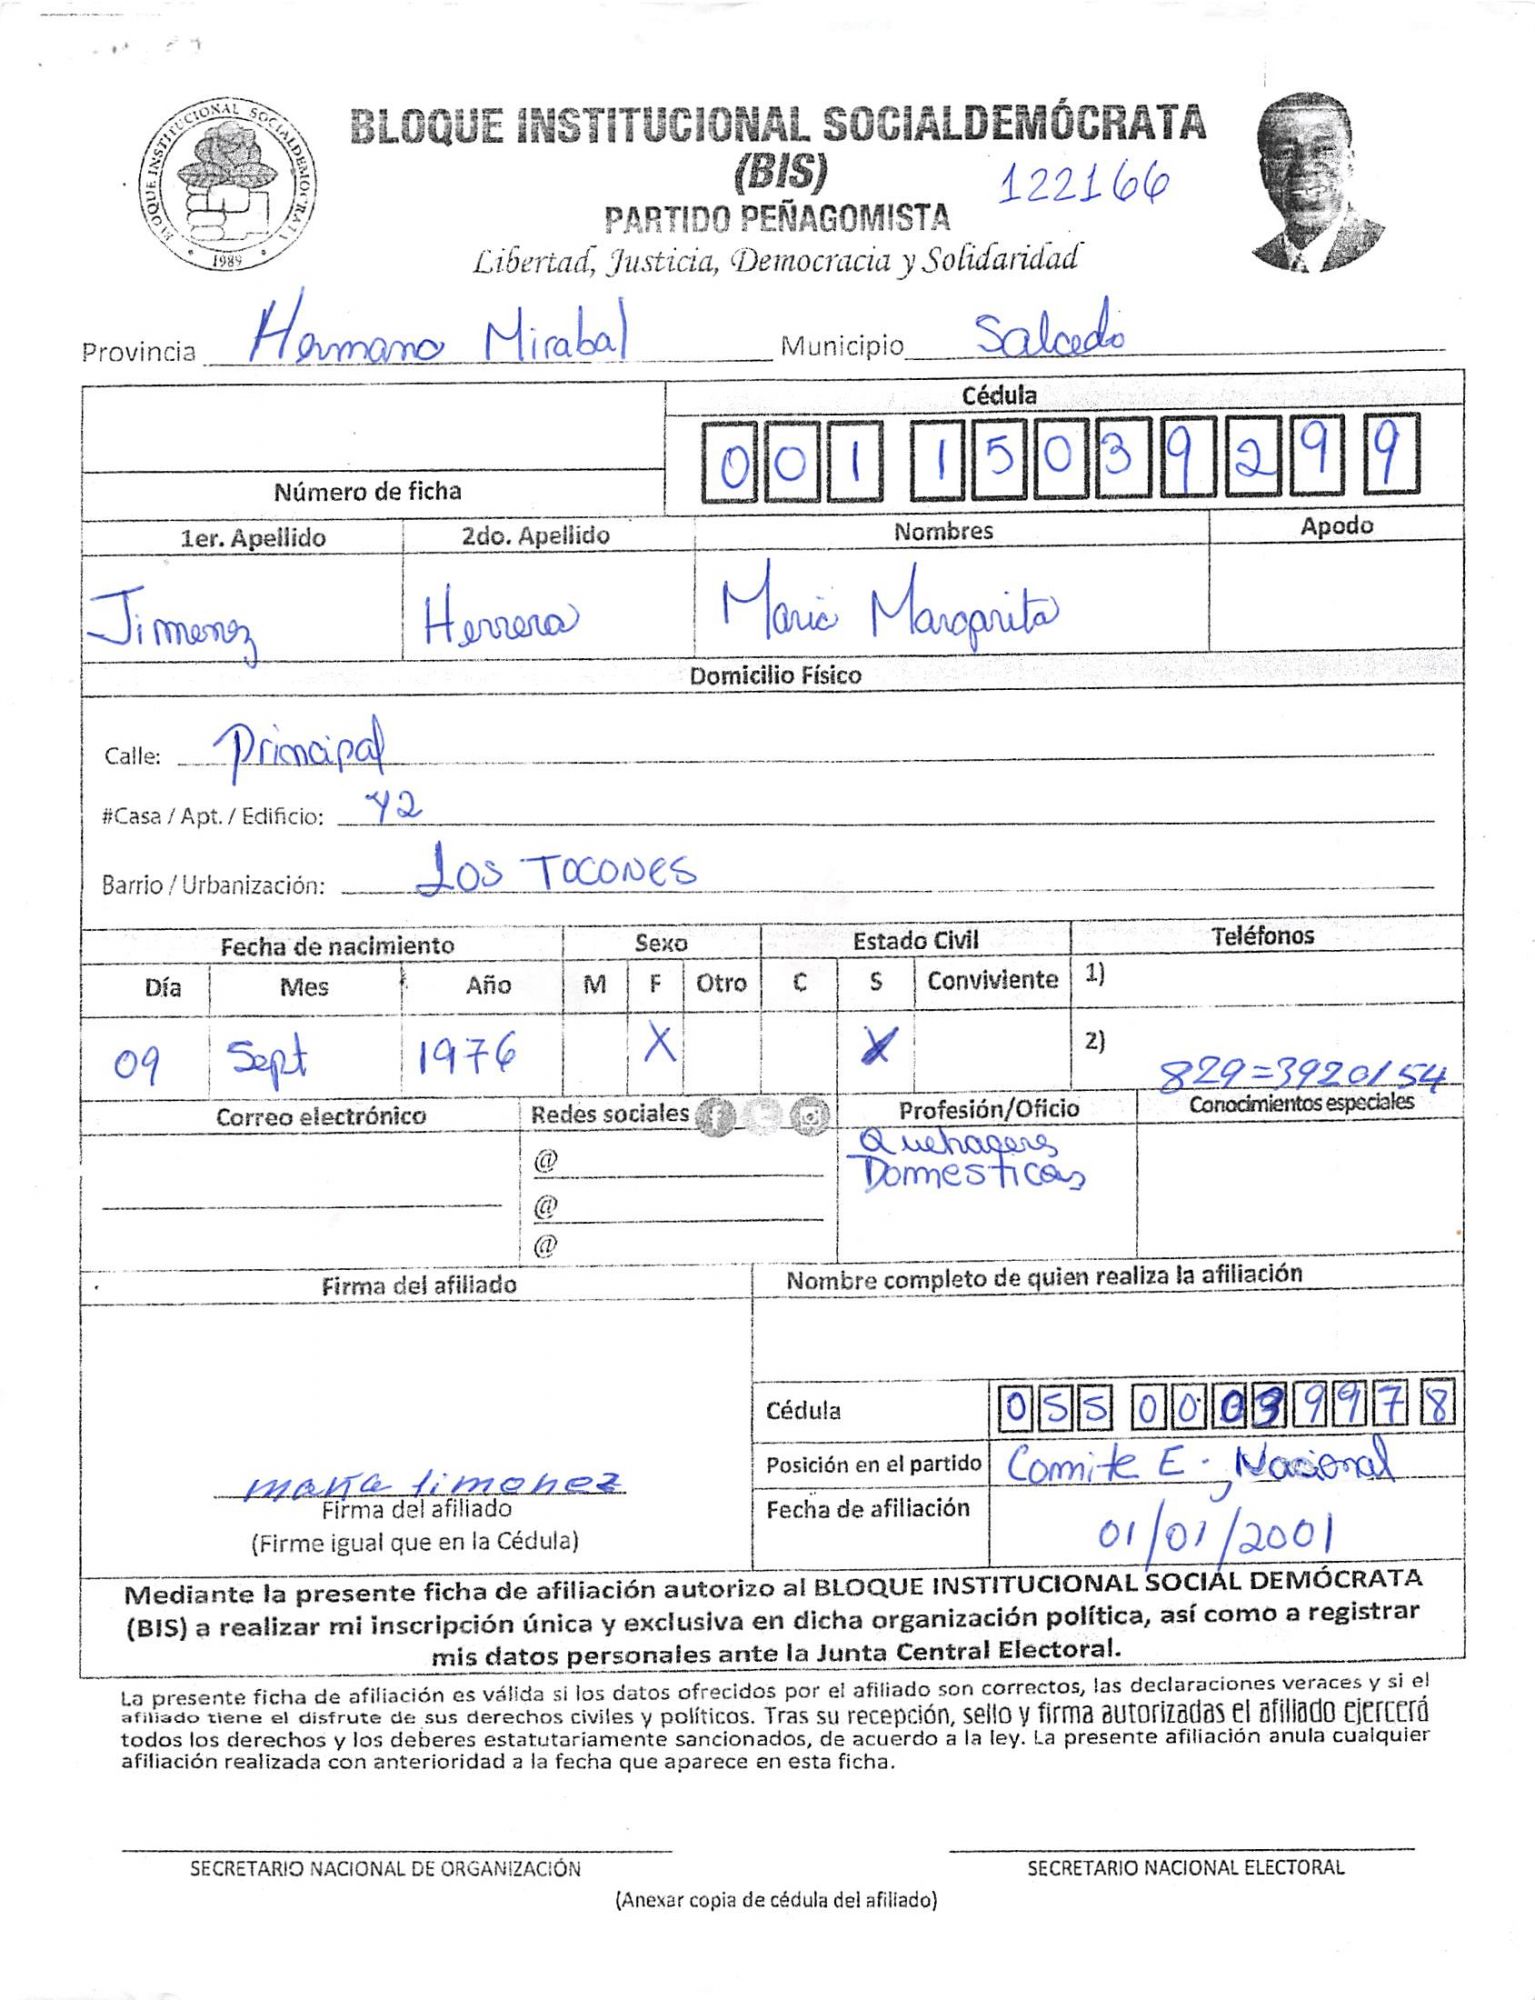 BLOQUE INSTITUCIONAL SOCIALDEMOCRATA
1989
BLOQUE INSTITUCIONAL SOCIALDEMÓCRATA
(BIS)
122166
PARTIDO PEÑAGOMISTA
Libertad, Justicia, Democracia y Solidaridad
Provincia Hermano Mirabal Municipio Salcedo
Cédula
001 1503929 9
Número de ficha
1er. Apellido 2do. Apellido Nombres Apodo
Jimenez Herrera Maria Margarita
Domicilio Físico
Calle: Principal
#Casa / Apt. / Edificio: 42
Barrio / Urbanización: Los TOCONES
Fecha de nacimiento Sexo Estado Civil Teléfonos
Día Mes Año M F Otro C S Conviviente 1)
09 Sept 1976 X X 2) 829=3920154
Correo electrónico Redes sociales Profesión/Oficio Conocimientos especiales
@ Quehaceres
Domesticos
@
@
Firma del afiliado Nombre completo de quien realiza la afiliación
Cédula 055 0003997 8
Posición en el partido Comite E. Nacional
maria Jimenez
Firma del afiliado
Fecha de afiliación 01/01/2001
(Firme igual que en la Cédula)
Mediante la presente ficha de afiliación autorizo al BLOQUE INSTITUCIONAL SOCIAL DEMÓCRATA
(BIS) a realizar mi inscripción única y exclusiva en dicha organización política, así como a registrar
mis datos personales ante la Junta Central Electoral.
La presente ficha de afiliación es válida si los datos ofrecidos por el afiliado son correctos, las declaraciones veraces y si el
afiliado tiene el disfrute de sus derechos civiles y políticos. Tras su recepción, sello y firma autorizadas el afiliado ejercerá
todos los derechos y los deberes estatutariamente sancionados, de acuerdo a la ley. La presente afiliación anula cualquier
afiliación realizada con anterioridad a la fecha que aparece en esta ficha.
SECRETARIO NACIONAL DE ORGANIZACIÓN SECRETARIO NACIONAL ELECTORAL
(Anexar copia de cédula del afiliado)